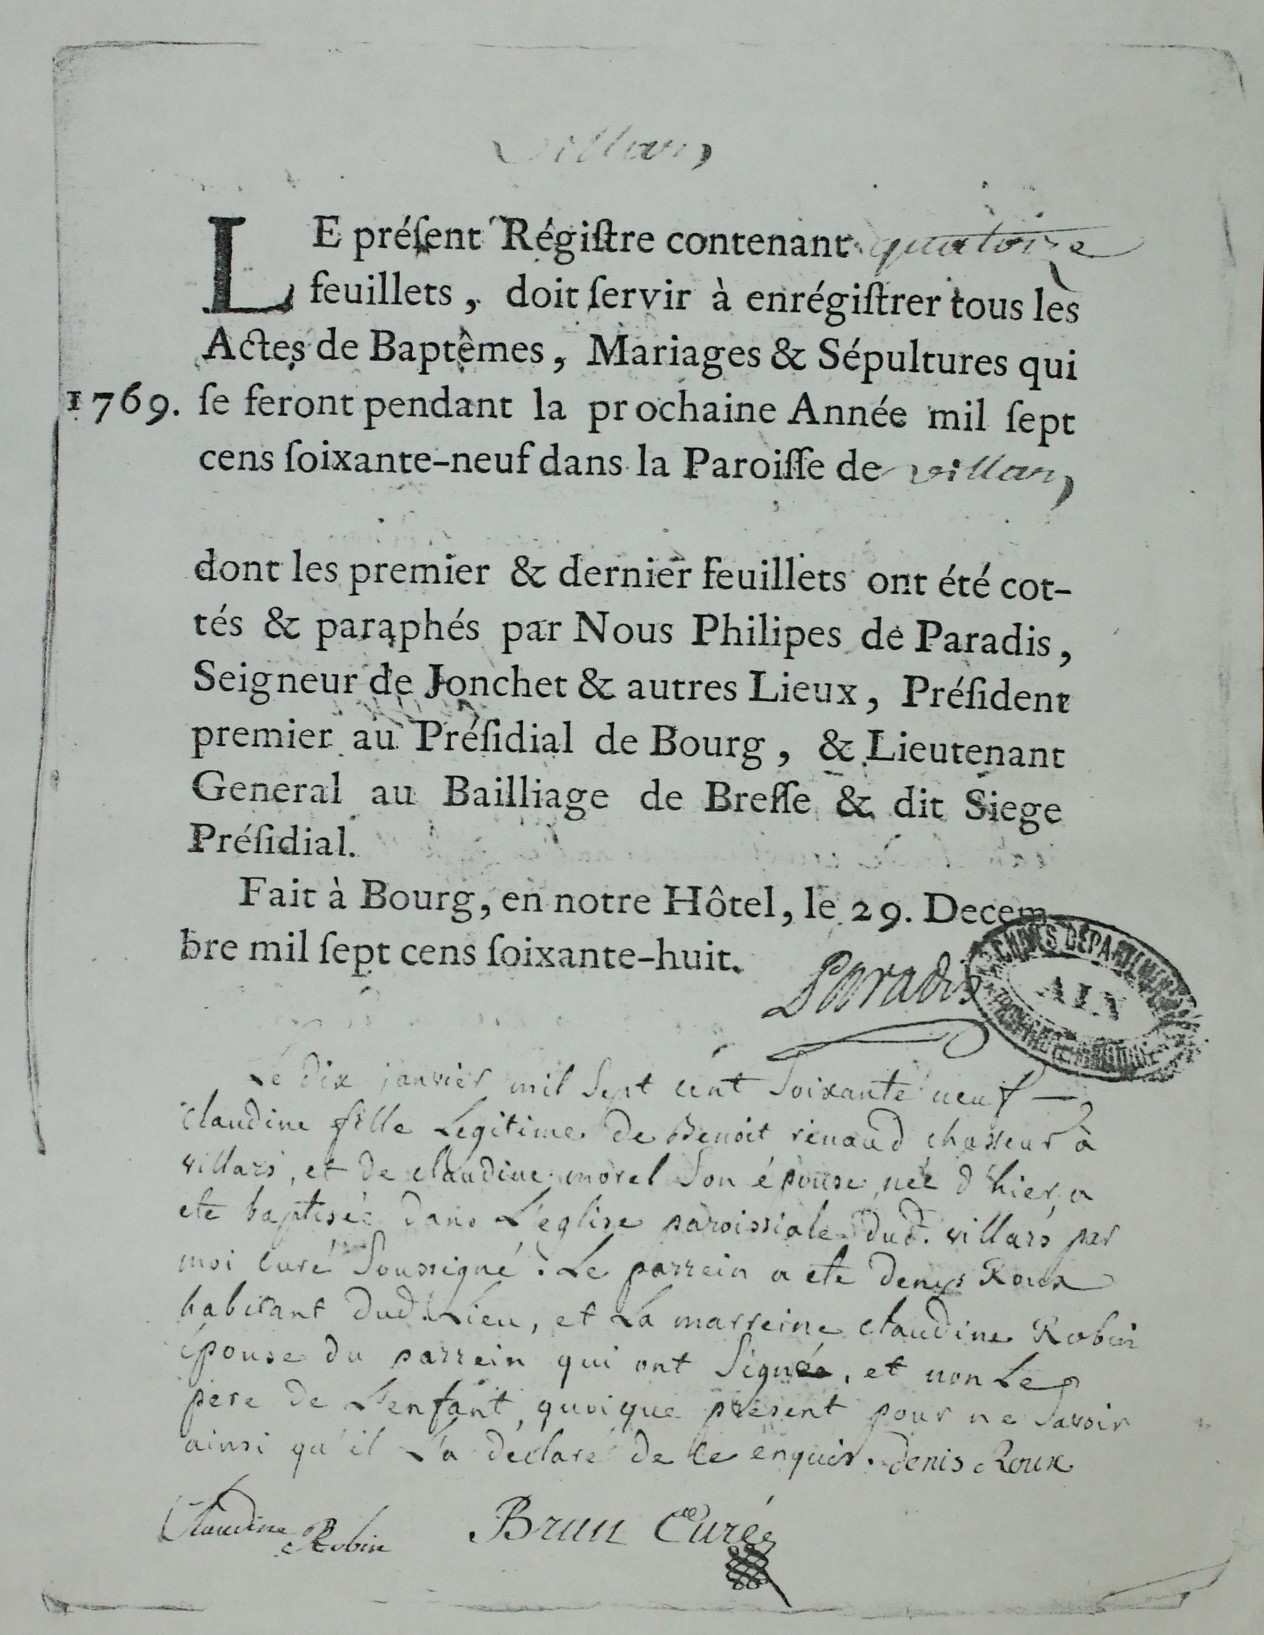 Villars
LE préſent Régiſtre contenant quatorze
feuillets, doit ſervir à enrégiſtrer tous les
Actes de Baptêmes, Mariages & Sépultures qui
1769. ſe feront pendant la prochaine Année mil ſept
cens ſoixante-neuf dans la Paroiſſe de villars
dont les premier & dernier feuillets ont été cot-
tés & paraphés par Nous Philipes de Paradis,
Seigneur de Jonchet & autres Lieux, Préſident
premier au Préſidial de Bourg, & Lieutenant
General au Bailliage de Breſſe & dit Siege
Préſidial.
Fait à Bourg, en notre Hôtel, le 29. Decem
bre mil ſept cens ſoixante-huit.
Paradis
ARCHIVES DÉPARTEMENTALES
AIN
Le dix janvier mil sept cent soixante neuf
claudine fille Legitime de Benoit renaud chasseur à
villars, et de claudine morel son épouse, née d'hier, a
ete baptisée dans L'eglise paroissiale dud. villars, par
moi curé soussigné. Le parrein a ete denys Roux
habitant dud. Lieu, et La marreine claudine Robin
épouse du parrein qui ont signés, et non Le
pere de L'enfant, quoique présent pour ne savoir
ainsi qu'il L'a déclaré de ce enquis. denis Roux
Claudine Robin Brun Curé